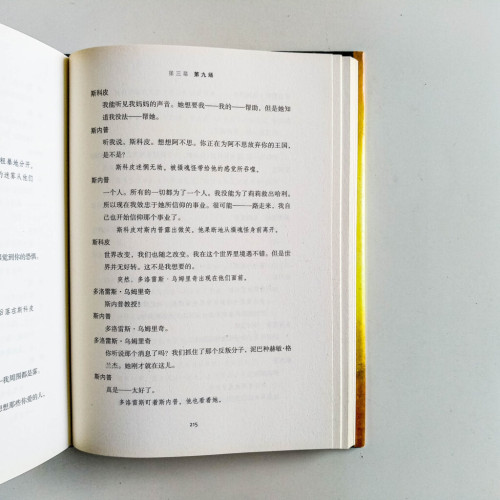 租暴地分开，
的迷雾从他们
觉到你的恐惧，
后落在斯科皮
—我周围都是雾，
想想那些你爱的人。
第三幕 第九场
斯科皮
我能听见我妈妈的声音。她想要我——我的——帮助，但是她知
道我没法——帮她。
斯内普
听我说，斯科皮。想想阿不思。你正在为阿不思放弃你的王国，
是不是？
斯科皮迷惘无助。被摄魂怪带给他的感觉所吞噬。
斯内普
一个人。所有的一切都为了一个人。我没能为了莉莉救出哈利。
所以现在我效忠于她所信仰的事业。很可能——一路走来，我自
己也开始信仰那个事业了。
斯科皮对斯内普露出微笑。他果断地从摄魂怪身前离开。
斯科皮
世界改变，我们也随之改变。我在这个世界里境遇不错。但是世
界并无好转。这不是我想要的。
突然，多洛雷斯·乌姆里奇出现在他们面前。
多洛雷斯·乌姆里奇
斯内普教授！
斯内普
多洛雷斯·乌姆里奇。
多洛雷斯·乌姆里奇
你听说那个消息了吗？我们抓住了那个反叛分子，泥巴种赫敏·格
兰杰。她刚才就在这儿。
斯内普
真是——太好了。
多洛雷斯盯着斯内普。他也看着她。
215